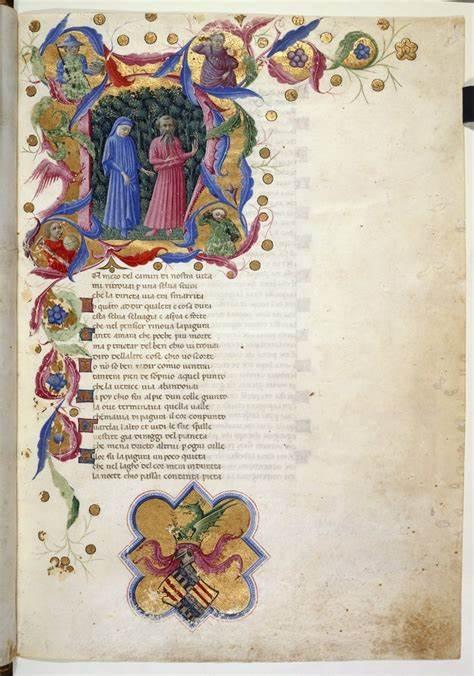 mezo del camin di nostra uita
mi ritrouai p una selua scura
che la diricta uia era smarrita
quāto a dir qual era e cosa dura
esta selua seluagia e aspra e forte
che nel pensier rinoua la paura
ante amara che pocho piu morte
ma p tractar del ben chio ui trouai
diro dellaltre cose chio uo scorte
o no so ben redir comio uentrai
tantera pien de sopnio aquel punto
che la uerace uia abandonai
a poi chio fui alpie dun colle giunto
la doue terminaua quella ualle
che mauia di paura il cor conpunto
uardai ī alto et uidi le sue spalle
uestite gia di raggi del pianeta
che mena dricto altrui p ogni colle
lor fu la paura un poco quieta
che nel lagho del cor mera
la nocte chio passai cotanta pieta